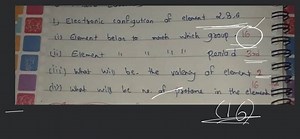 1) Electronic configution of element 2.8.6
(i) Element belon to math which group 16
(ii) Element " " " " period 3rd
(iii) What will be the valency of element 2
(iv) What will be no. of protons in the element
(16)